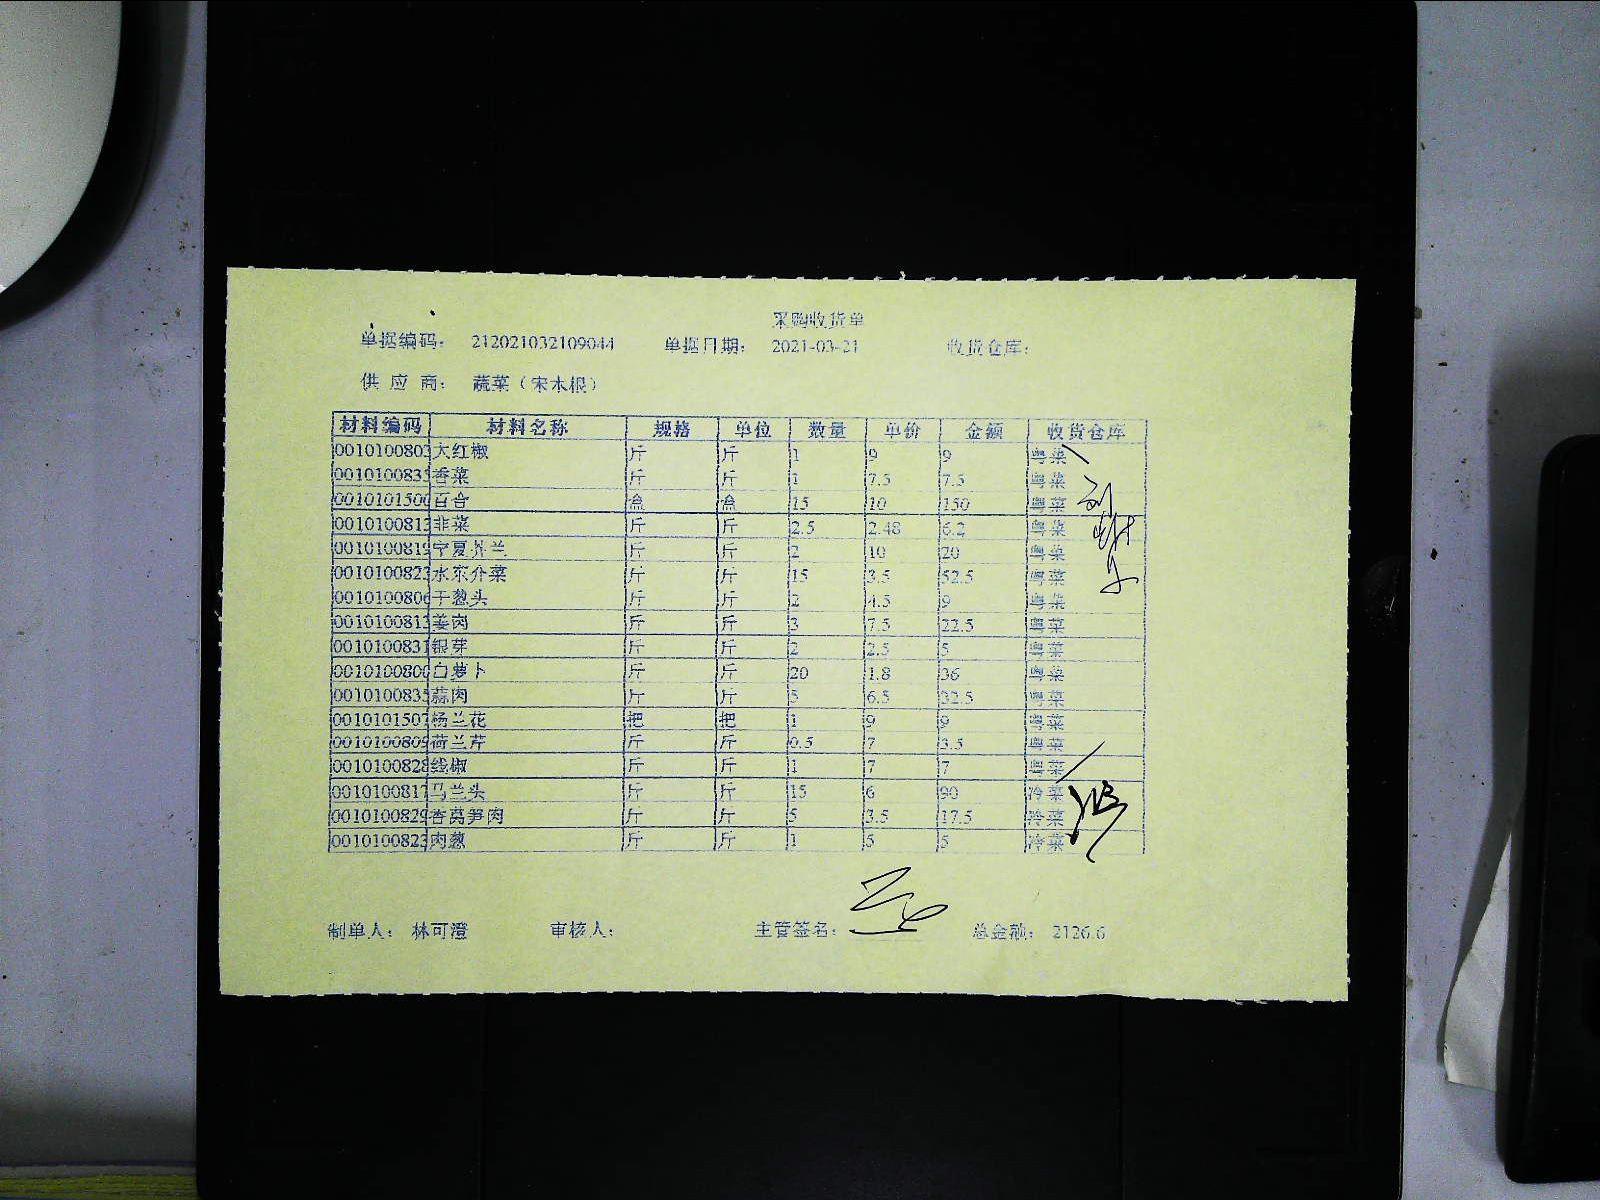 采购收货单
单据编码： 212021032109044 单据日期： 2021-03-21 收货仓库：
供 应 商： 蔬菜（宋木根）
材料编码 材料名称 规格 单位 数量 单价 金额 收货仓库
0010100803 大红椒 斤 斤 1 9 9 粤菜
0010100835 香菜 斤 斤 1 7.5 7.5 粤菜
0010101500 百合 盒 盒 15 10 150 粤菜
0010100813 韭菜 斤 斤 2.5 2.48 6.2 粤菜
0010100819 宁夏芥兰 斤 斤 2 10 20 粤菜
0010100822 水东介菜 斤 斤 15 3.5 52.5 粤菜
0010100806 干葱头 斤 斤 2 4.5 9 粤菜
0010100813 姜肉 斤 斤 3 7.5 22.5 粤菜
0010100831 银芽 斤 斤 2 2.5 5 粤菜
0010100800 白萝卜 斤 斤 20 1.8 36 粤菜
0010100835 蒜肉 斤 斤 5 6.5 32.5 粤菜
0010101507 杨兰花 把 把 1 9 9 粤菜
0010100809 荷兰芹 斤 斤 0.5 7 3.5 粤菜
0010100828 线椒 斤 斤 1 7 7 粤菜
0010100817 马兰头 斤 斤 15 6 90 冷菜
0010100829 香莴笋肉 斤 斤 5 3.5 17.5 冷菜
0010100823 肉葱 斤 斤 1 5 5 冷菜
制单人： 林可澄 审核人： 主管签名： 总金额： 2126.6